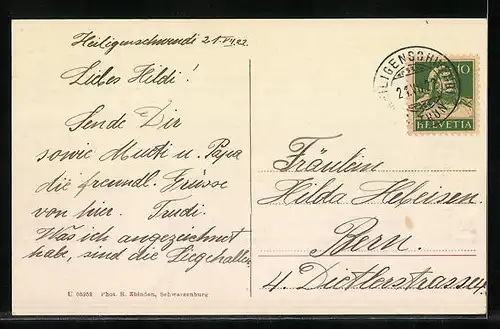 Heiligenschwendi 21.VII.22.
Liebes Hildi!
Sende Dir
sowie Mutti u. Papa
die freundl. Grüsse
von hier. Trudi.
Was ich angezeichnet
habe, sind die Liegehallen.
HEILIGENSCHWENDI
(THUN)
10
HELVETIA
Fräulein
Hilda Hefeisen
Bern.
4. Dietlerstrasse
U 05952 Phot. R. Zbinden, Schwarzenburg